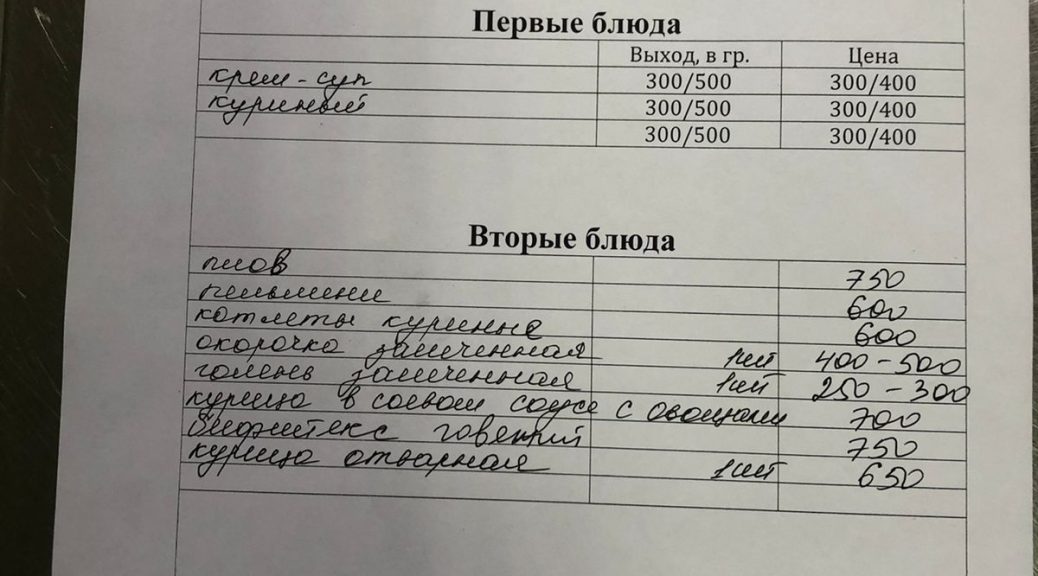 Первые блюда
Выход, в гр. Цена
крем-суп 300/500 300/400
куриный 300/500 300/400
300/500 300/400
Вторые блюда
плов 750
пельмени 600
котлеты куриные 600
окорочка запеченная 1шт 400-500
голень запеченная 1шт 250-300
курица в соевом соусе с овощами 700
бифштекс говяжий 750
курица отварная 1шт 650